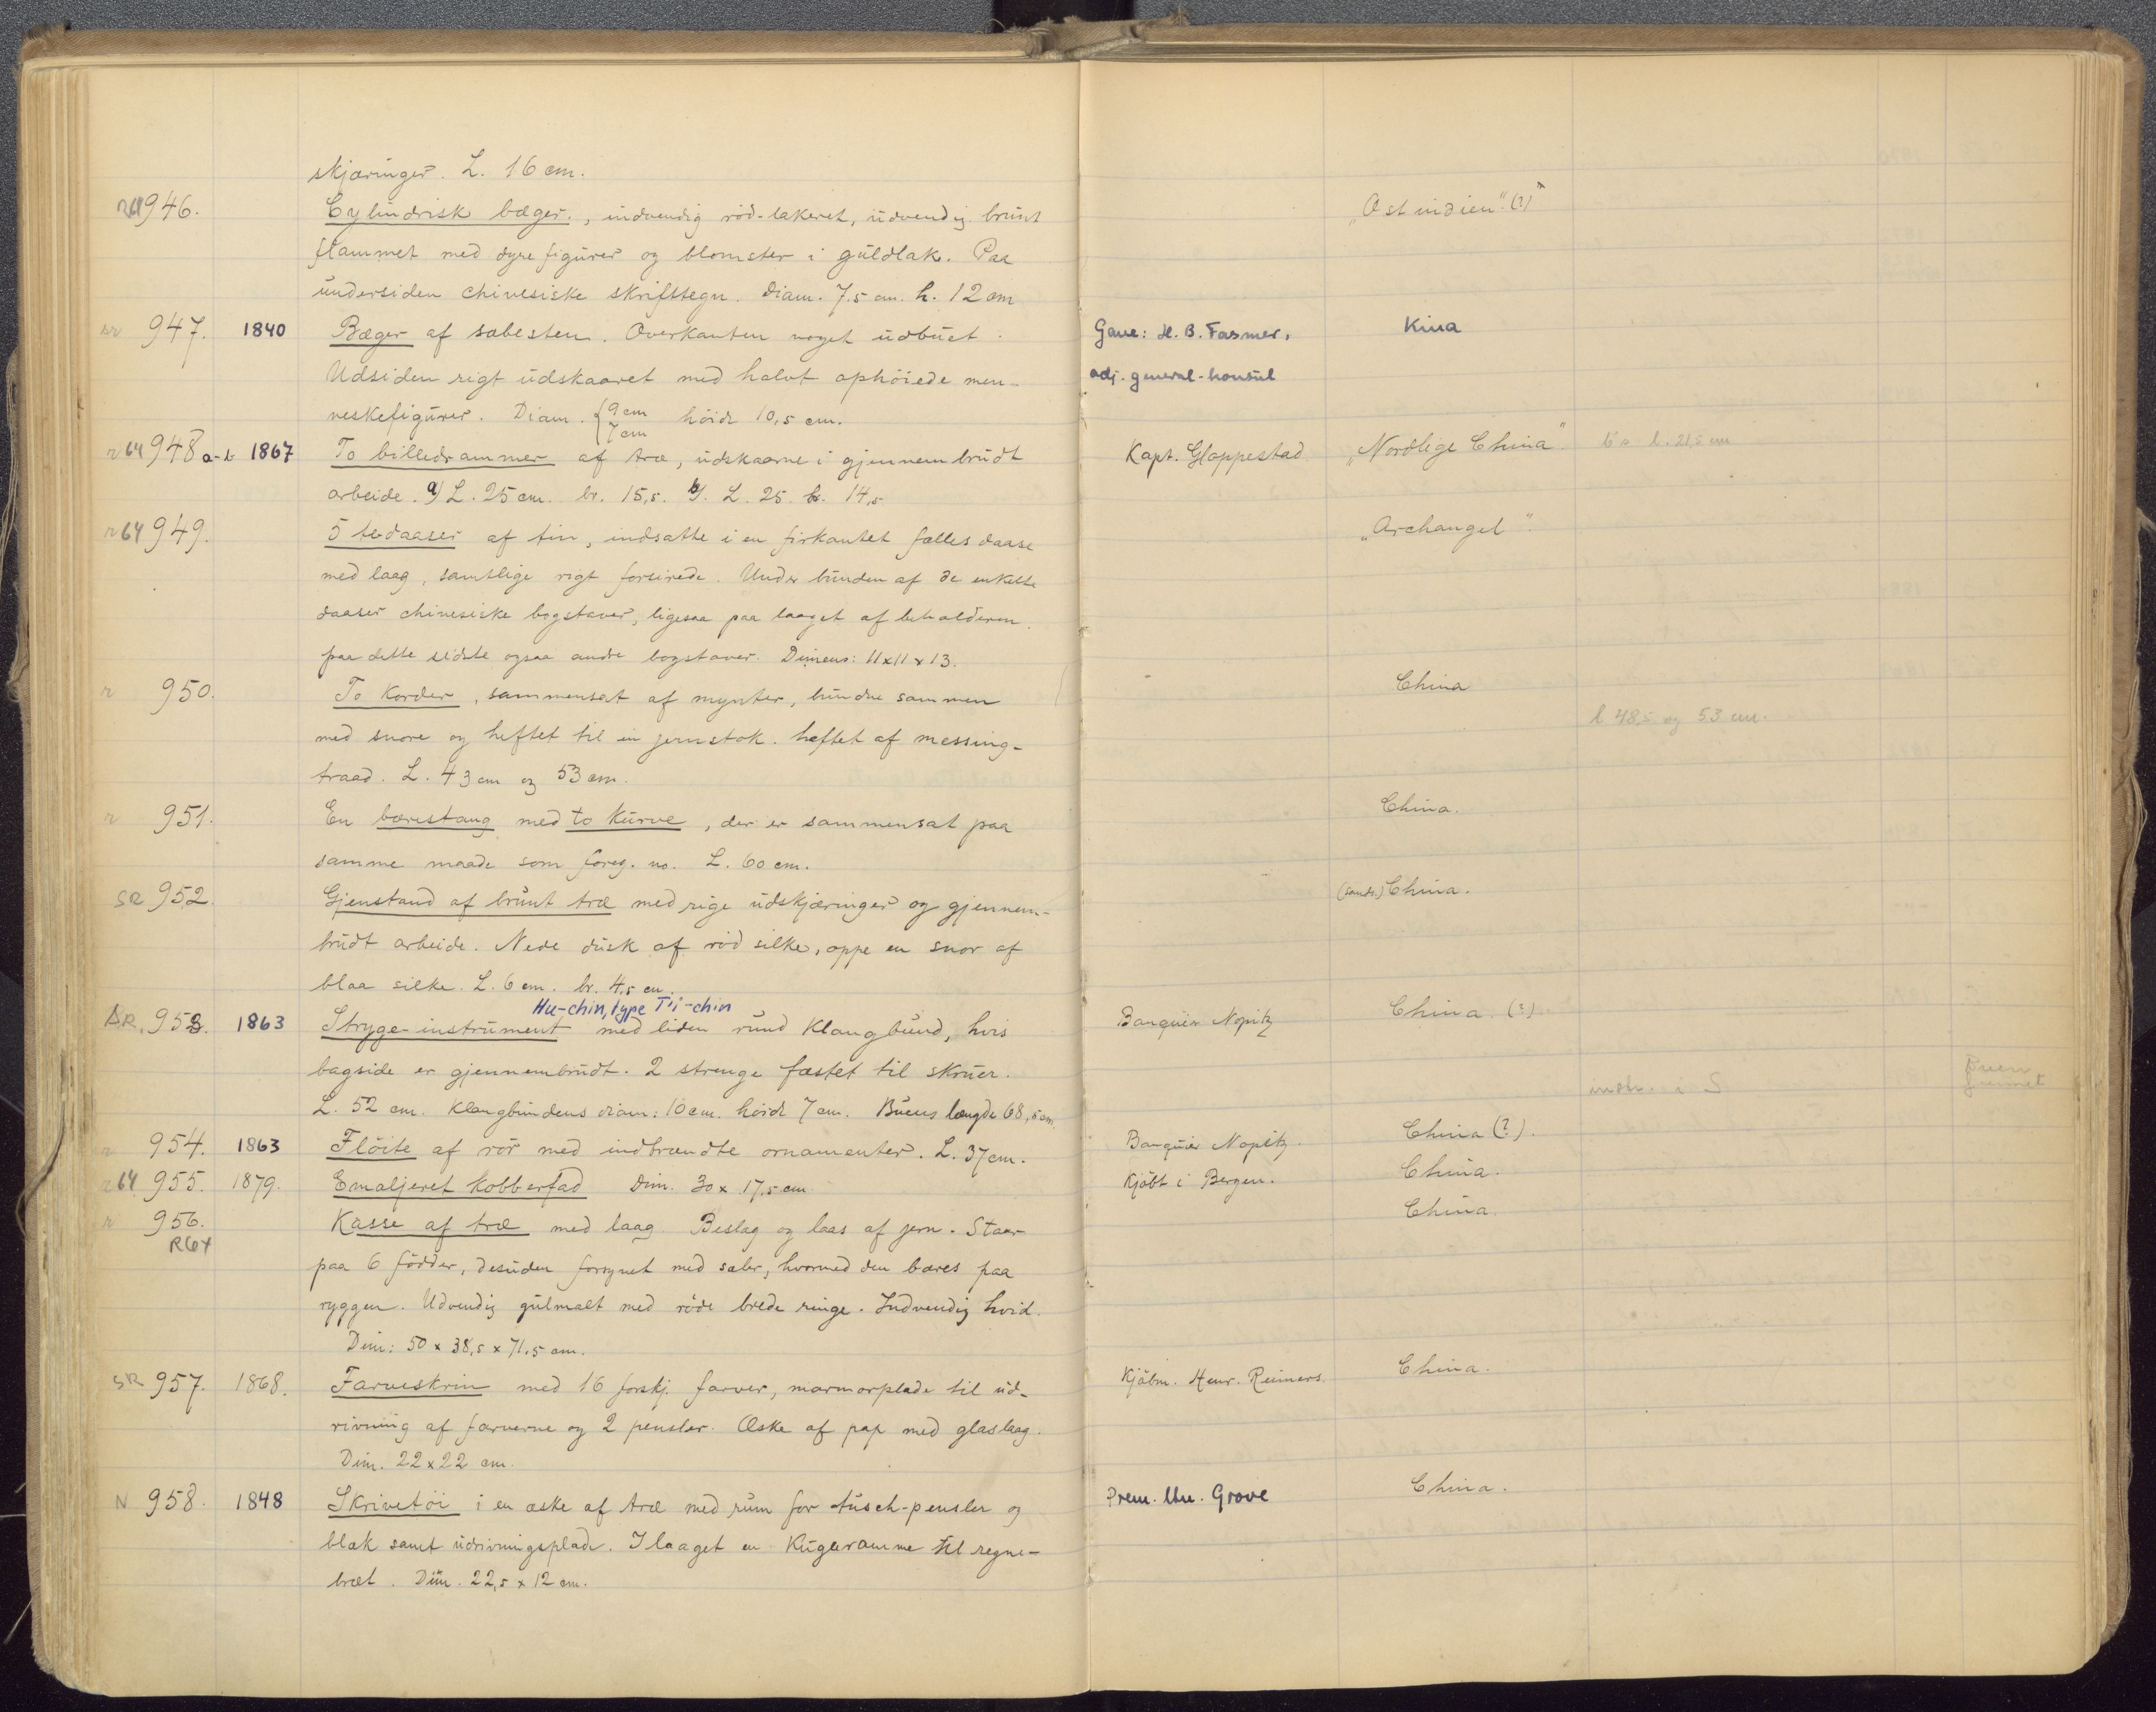 skjæringer. L. 16 cm.
946. Cylindrisk bæger., indvendig röd-lakeret, udvendig brunt "Ostindien". (?)
flammet med dyrefigurer og blomster i guldlak. Paa
undersiden chinesiske skrifttegn. diam. 7.5 cm. h. 12 cm
sr 947. 1840 Bæger af sæbesten. Overkanten noget udbuet. Gave: H. B. Fasmer, Kina
Udsiden rigt udskaaret med halvt ophöiede men- adj. general-konsul
neskefigurer. Diam. {9 cm 7 cm höide 10,5 cm.
r64 948 a-b 1867 To billedrammer af træ, udskaarne i gjennembrudt Kapt. Gloppestad "Nordlige China". l. 21,5 cm
arbeide. a) L. 25 cm. br. 15,5. b). L. 25. br. 14,5
r64 949. 5 tedaaser af tin, indsatte i en firkantet fælles daase "Archangel".
med laag, samtlige rigt forsirede. Under bunden af de enkelte
daaser chinesiske bogstaver, ligesaa paa laaget af beholderen.
paa dette sidste ogsaa andre bogstaver. Dimens: 11x11x13.
r 950. To Korder, sammensat af mynter, bundne sammen China
med snore og heftet til en jernstok. hæftet af messing- l 48,5 og 53 cm.
traad. L. 43 cm og 53 cm.
r 951. En bærestang med to Kurve, der er sammensat paa China.
samme maade som foreg. no. L. 60 cm.
SR 952. Gjenstand af brunt træ med rige udskjæringer og gjennem- (sands.) China.
brudt arbeide. Nede dusk af röd silke, oppe en snor af
blaa silke. L. 6 cm. br. 4,5 cm.
Hu-chin, type T'i-chin
SR. 953. 1863 Stryge-instrument med liden rund Klangbund, hvis Banquier Nopitz China. (?)
bagside er gjennembrudt. 2 strenge fæstet til skruer.
L. 52 cm. Klangbundens diam: 10 cm. höide 7 cm. Buens længde 68,5 cm.
r 954. 1863 Flöite af rör med indbrændte ornamenter. L. 37 cm. Banquier Nopitz. China (?).
r64 955. 1879. Emaljeret kobberfad Dim. 30 x 17,5 cm Kjöbt i Bergen. China.
r 956. Kasse af træ med laag. Beslag og laas af jern. Staar China.
R64
paa 6 födder, desuden forsynet med sæler, hvormed den bæres paa
ryggen. Udvendig gulmalt med röde brede ringe. Indvendig hvid.
Dim: 50 x 38,5 x 71.5 cm.
SR 957. 1868. Farveskrin med 16 forskj. farver, marmorplade til ud- Kjöbm. Henr. Reimers. China.
rivning af farverne og 2 pensler. Æske af pap med glaslaag.
Dim. 22 x 22 cm.
N 958. 1848 Skrivetöi i en æske af træ med rum for tusch-pensler og Prem. Ltn. Grove China.
blæk samt udrivningsplade. I laaget en Kugleramme til regne-
bræt. Dim. 22,5 x 12 cm.